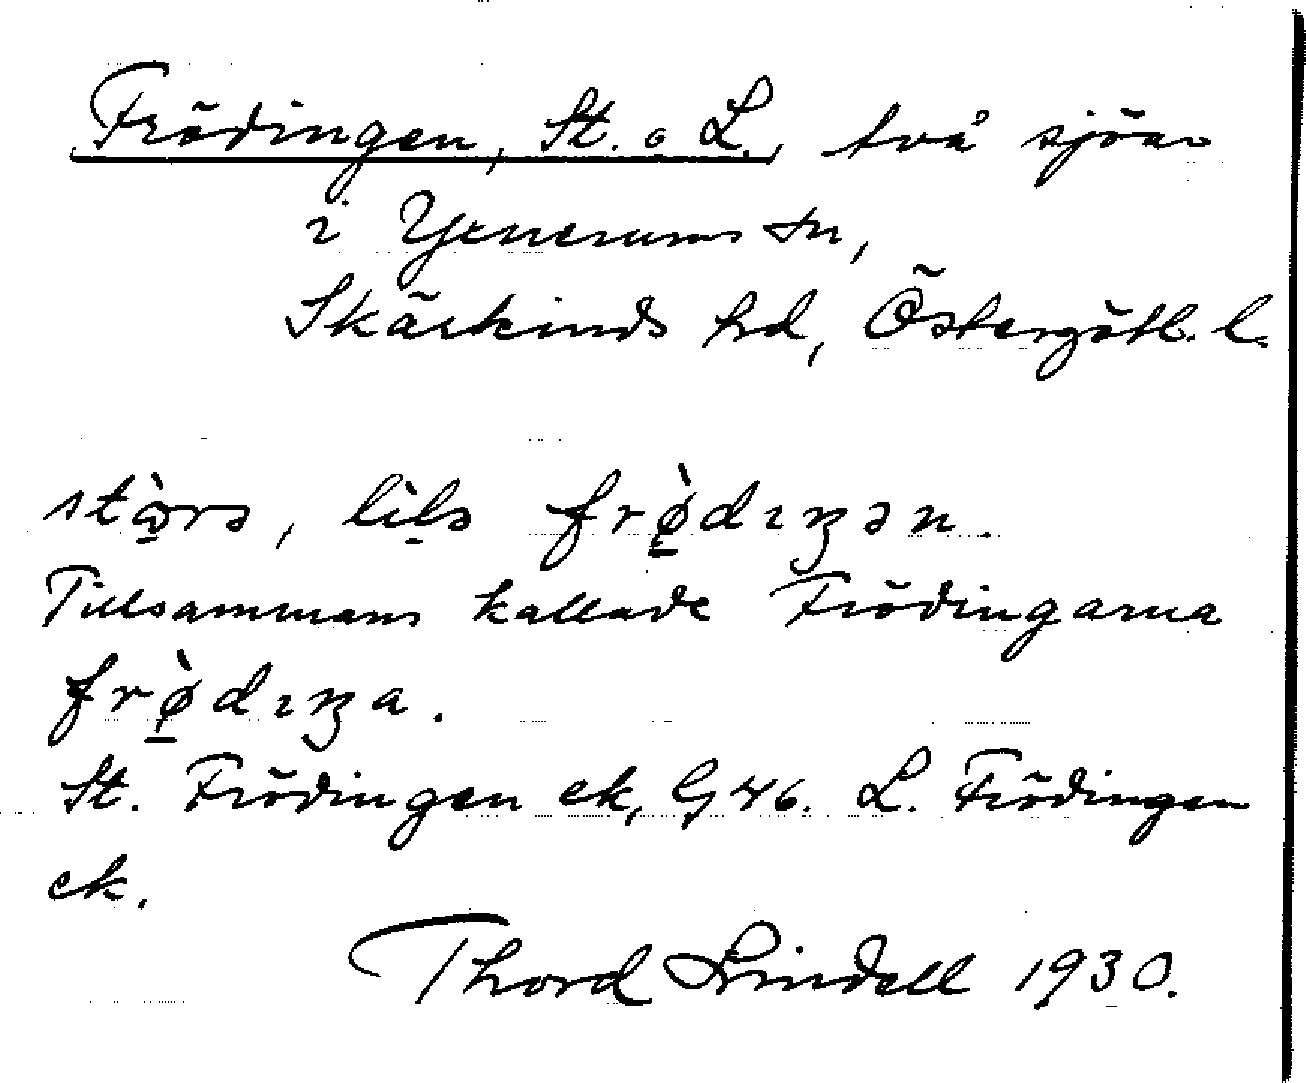 Frödingen, St. o L., två sjöar
i Yxnerums sn,
Skärkinds hd, Östergötl. l.
stɷ̀rs, lìls frø̀dıŋən.
Tillsammans kallade Frödingarna
frø̀dıŋa.
St. Frödingen ek, G 46. L. Frödingen
ek.
Thord Lindell 1930.